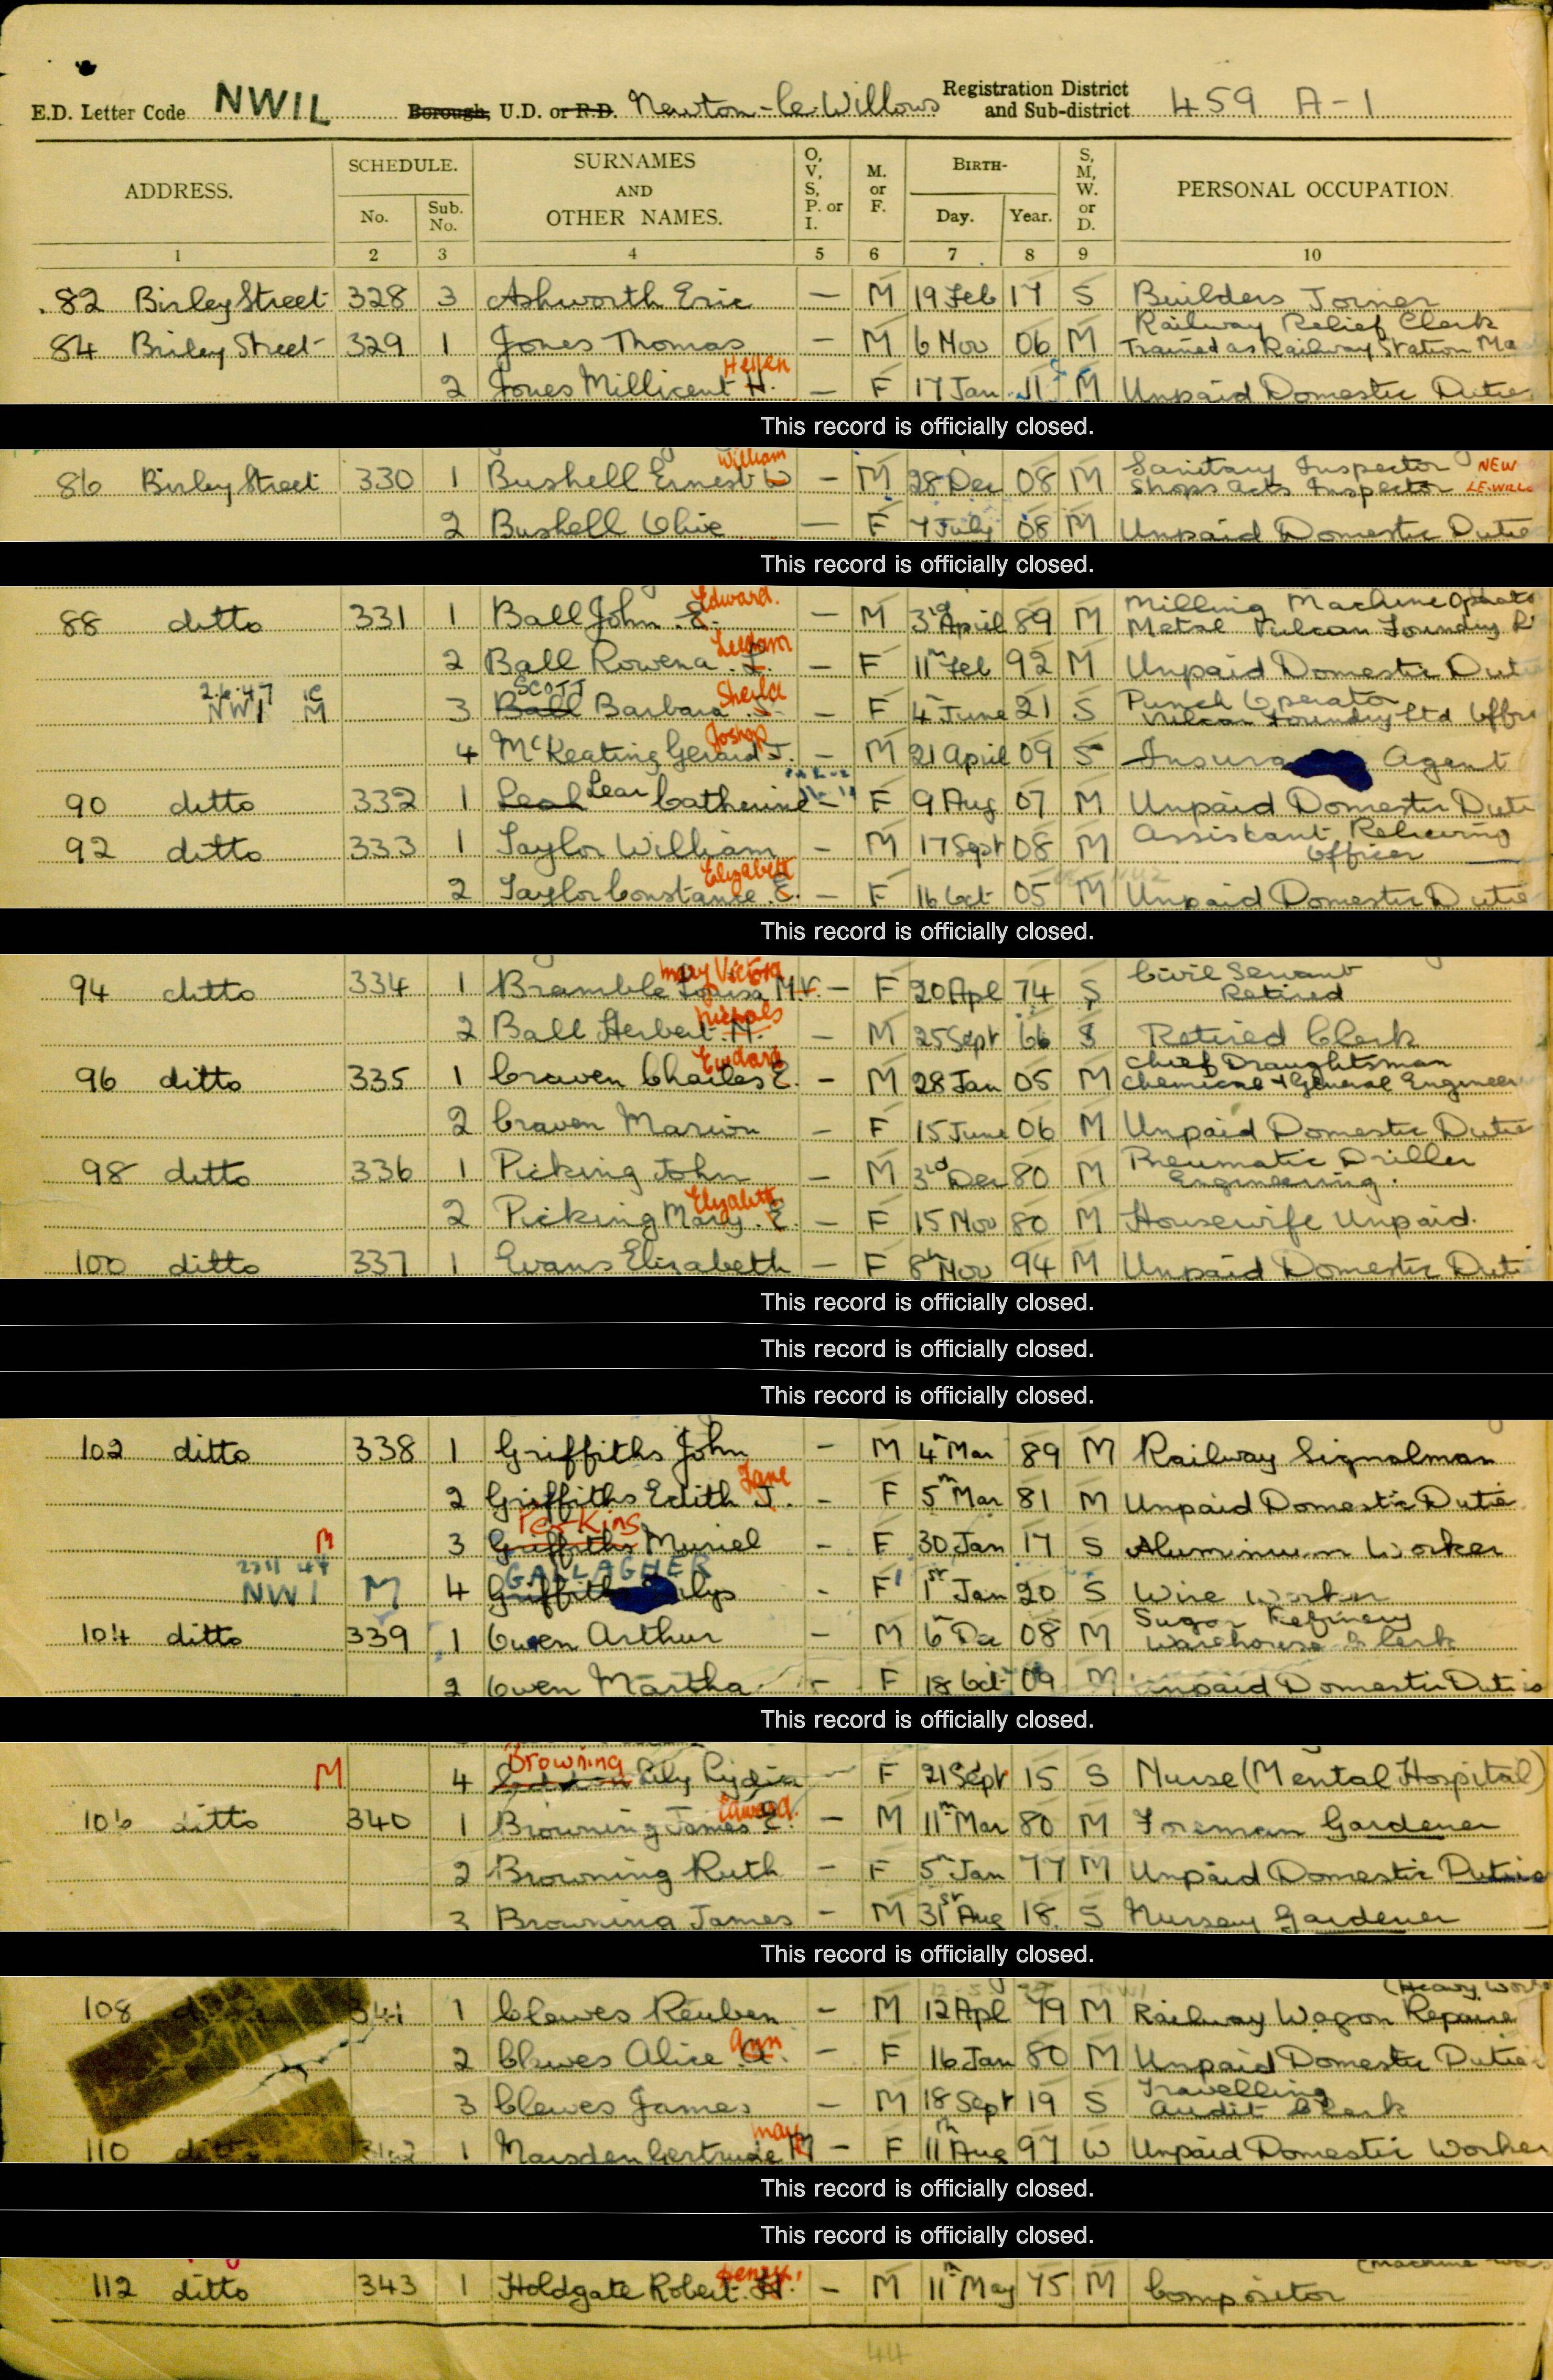 E.D. Letter Code NWIL Borough, U.D. or R.D. Newton-le-Willows Registration District and Sub-district 459 A-1
ADDRESS. SCHEDULE. No. Sub. No. SURNAMES AND OTHER NAMES. O, V, S, P. or I. M. or F. BIRTH- Day. Year. S, M, W. or D. PERSONAL OCCUPATION.
1 2 3 4 5 6 7 8 9 10
82 Birley Street 328 3 Ashworth Eric — M 19 Feb 17 S Builders Joiner
84 Birley Street 329 1 Jones Thomas — M 6 Nov 06 M Railway Relief Clerk Trained as Railway Station Ma
2 Jones Millicent H. Hellen — F 17 Jan 11 M Unpaid Domestic Dutie
This record is officially closed.
86 Birley Street 330 1 Bushell Ernest W William — M 28 Dec 08 M Sanitary Inspector Shops Acts Inspector NEW LE-WILL
2 Bushell Olive — F 7 July 08 M Unpaid Domestic Dutie
This record is officially closed.
88 ditto 331 1 Ball John E. Edward. — M 3rd April 89 M Milling Machine Operato Metal Vulcan Foundry L
2 Ball Rowena L. — F 11th Feb 92 M Unpaid Domestic Duti
2.6.47 NW1 M 3 Ball SCOTT Barbara S. Sheila — F 4th June 21 S Punch Operator Vulcan Foundry Ltd Offi
4 McKeating Gerard J. Joseph — M 21 April 09 S Insura Agent
90 ditto 332 1 Leah Lear Catherine — F 9 Aug 07 M Unpaid Domestic Duti
92 ditto 333 1 Taylor William — M 17 Sept 08 M Assistant Relieving Officer
2 Taylor Constance E. Elizabeth — F 16 Oct 05 M Unpaid Domestic Dutie
This record is officially closed.
94 ditto 334 1 Bramble Louisa M.V. Mary Victoria — F 20 Apl 74 S Civil Servant Retired
2 Ball Herbert N. — M 25 Sept 66 S Retired Clerk
96 ditto 335 1 Craven Charles E. Edward — M 28 Jan 05 M Chief Draughtsman Chemical & General Engineer
2 Craven Marion — F 15 June 06 M Unpaid Domestic Dutie
98 ditto 336 1 Picking John — M 3rd Dec 80 M Pneumatic Driller Engineering.
2 Picking Mary E. Elizabeth — F 15 Nov 80 M Housewife Unpaid.
100 ditto 337 1 Evans Elizabeth — F 8th Nov 94 M Unpaid Domestic Duti
This record is officially closed.
This record is officially closed.
This record is officially closed.
102 ditto 338 1 Griffiths John — M 4th Mar 89 M Railway Signalman
2 Griffiths Edith J. Jane — F 5th Mar 81 M Unpaid Domestic Dutie
M 3 Griffiths Perkins Muriel — F 30 Jan 17 S Aluminium Worker
NW1 M 4 Griffith GALLAGHER lys - F 1st Jan 20 S Wire Worker
104 ditto 339 1 Owen Arthur — M 6th Dec 08 M Sugar Refinery Warehouse Clerk
2 Owen Martha — F 18 Oct 09 M Unpaid Domestic Duties
This record is officially closed.
M 4 Browning Lily Lydia — F 21 Sept 15 S Nurse (Mental Hospital)
106 ditto 340 1 Browning James E. Edward. — M 11th Mar 80 M Foreman Gardener
2 Browning Ruth — F 5th Jan 77 M Unpaid Domestic Dutie
3 Browning James — M 31st Aug 18 S Nursery Gardener
This record is officially closed.
108 341 1 Clewes Reuben — M 12 Apl 79 M Railway Wagon Repaire (Heavy Work
2 Clewes Alice A. Ann — F 16 Jan 80 M Unpaid Domestic Dutie
3 Clewes James — M 18 Sept 19 S Travelling Audit Clerk
110 ditto 342 1 Marsden Gertrude M May — F 11th Aug 97 W Unpaid Domestic Worker
This record is officially closed.
This record is officially closed.
112 ditto 343 1 Holdgate Robert H. Henry. — M 11th May 75 M Compositor (Machine
44